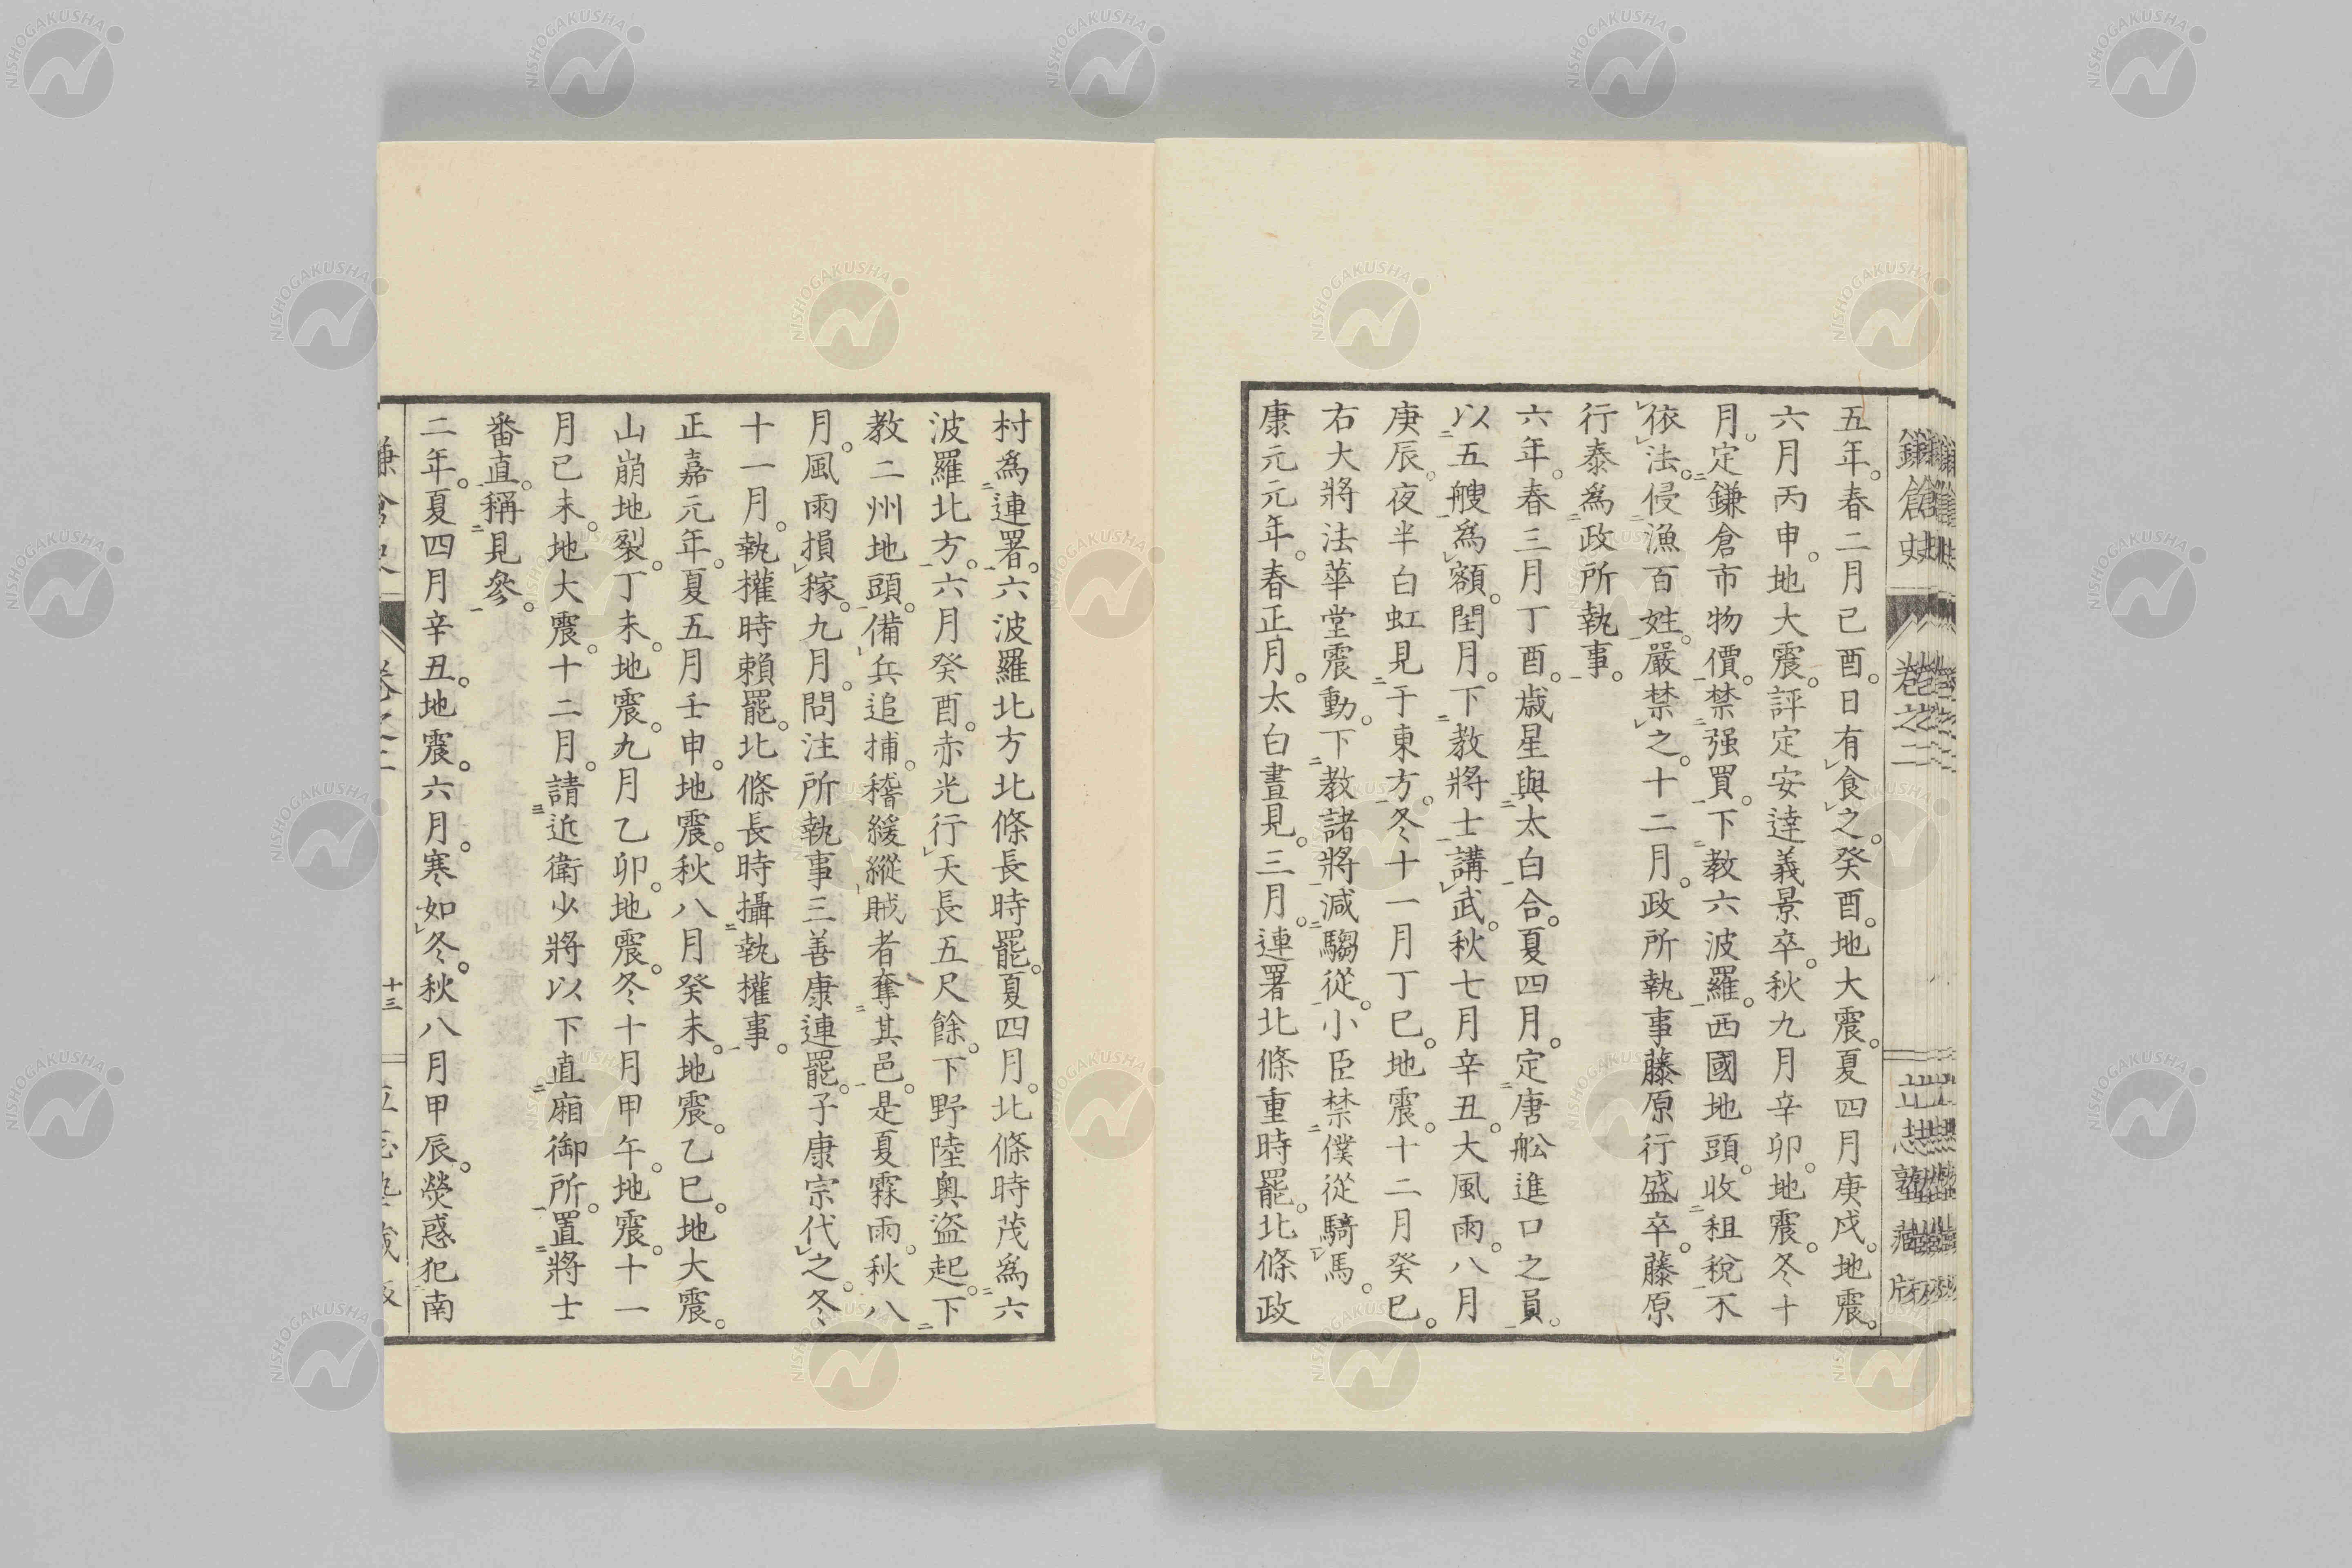 五年。春二月己酉。日有食之。癸酉。地大震。夏四月庚戌。地震。
六月丙申。地大震。評定安達義景卒。秋九月辛卯。地震。冬十
月。定鎌倉市物價。禁强買。下教六波羅。西國地頭。收租稅不
依法。侵漁百姓。嚴禁之。十二月。政所執事藤原行盛卒。藤原
行泰爲政所執事。
六年。春三月丁酉。歲星與太白合。夏四月。定唐舩進口之員。
以五艘爲額。閏月。下教將士講武。秋七月辛丑。大風雨。八月
庚辰。夜半白虹見于東方。冬十一月丁巳。地震。十二月癸巳。
右大將法華堂震動。下教諸將減騶從。小臣禁僕從騎馬。
康元元年。春正月。太白晝見。三月。連署北條重時罷。北條政
村爲連署。六波羅北方北條長時罷。夏四月。北條時茂爲六
波羅北方。六月癸酉。赤光行天長五尺餘。下野陸奧盜起。下
教二州地頭。備兵追捕。稽緩縱賊者奪其邑。是夏霖雨。秋八
月。風雨損稼。九月。問注所執事三善康連罷。子康宗代之。冬
十一月。執權時賴罷。北條長時攝執權事。
正嘉元年。夏五月壬申。地震。秋八月癸未。地震。乙巳。地大震。
山崩地裂。丁未。地震。九月乙卯。地震。冬十月甲午。地震。十一
月己未。地大震。十二月。請近衛少將以下直廂御所。置將士
番直。稱見參。
二年。夏四月辛丑。地震。六月。寒如冬。秋八月甲辰。熒惑犯南
鎌倉史
卷之二
十三
NISHOGAKUSHA